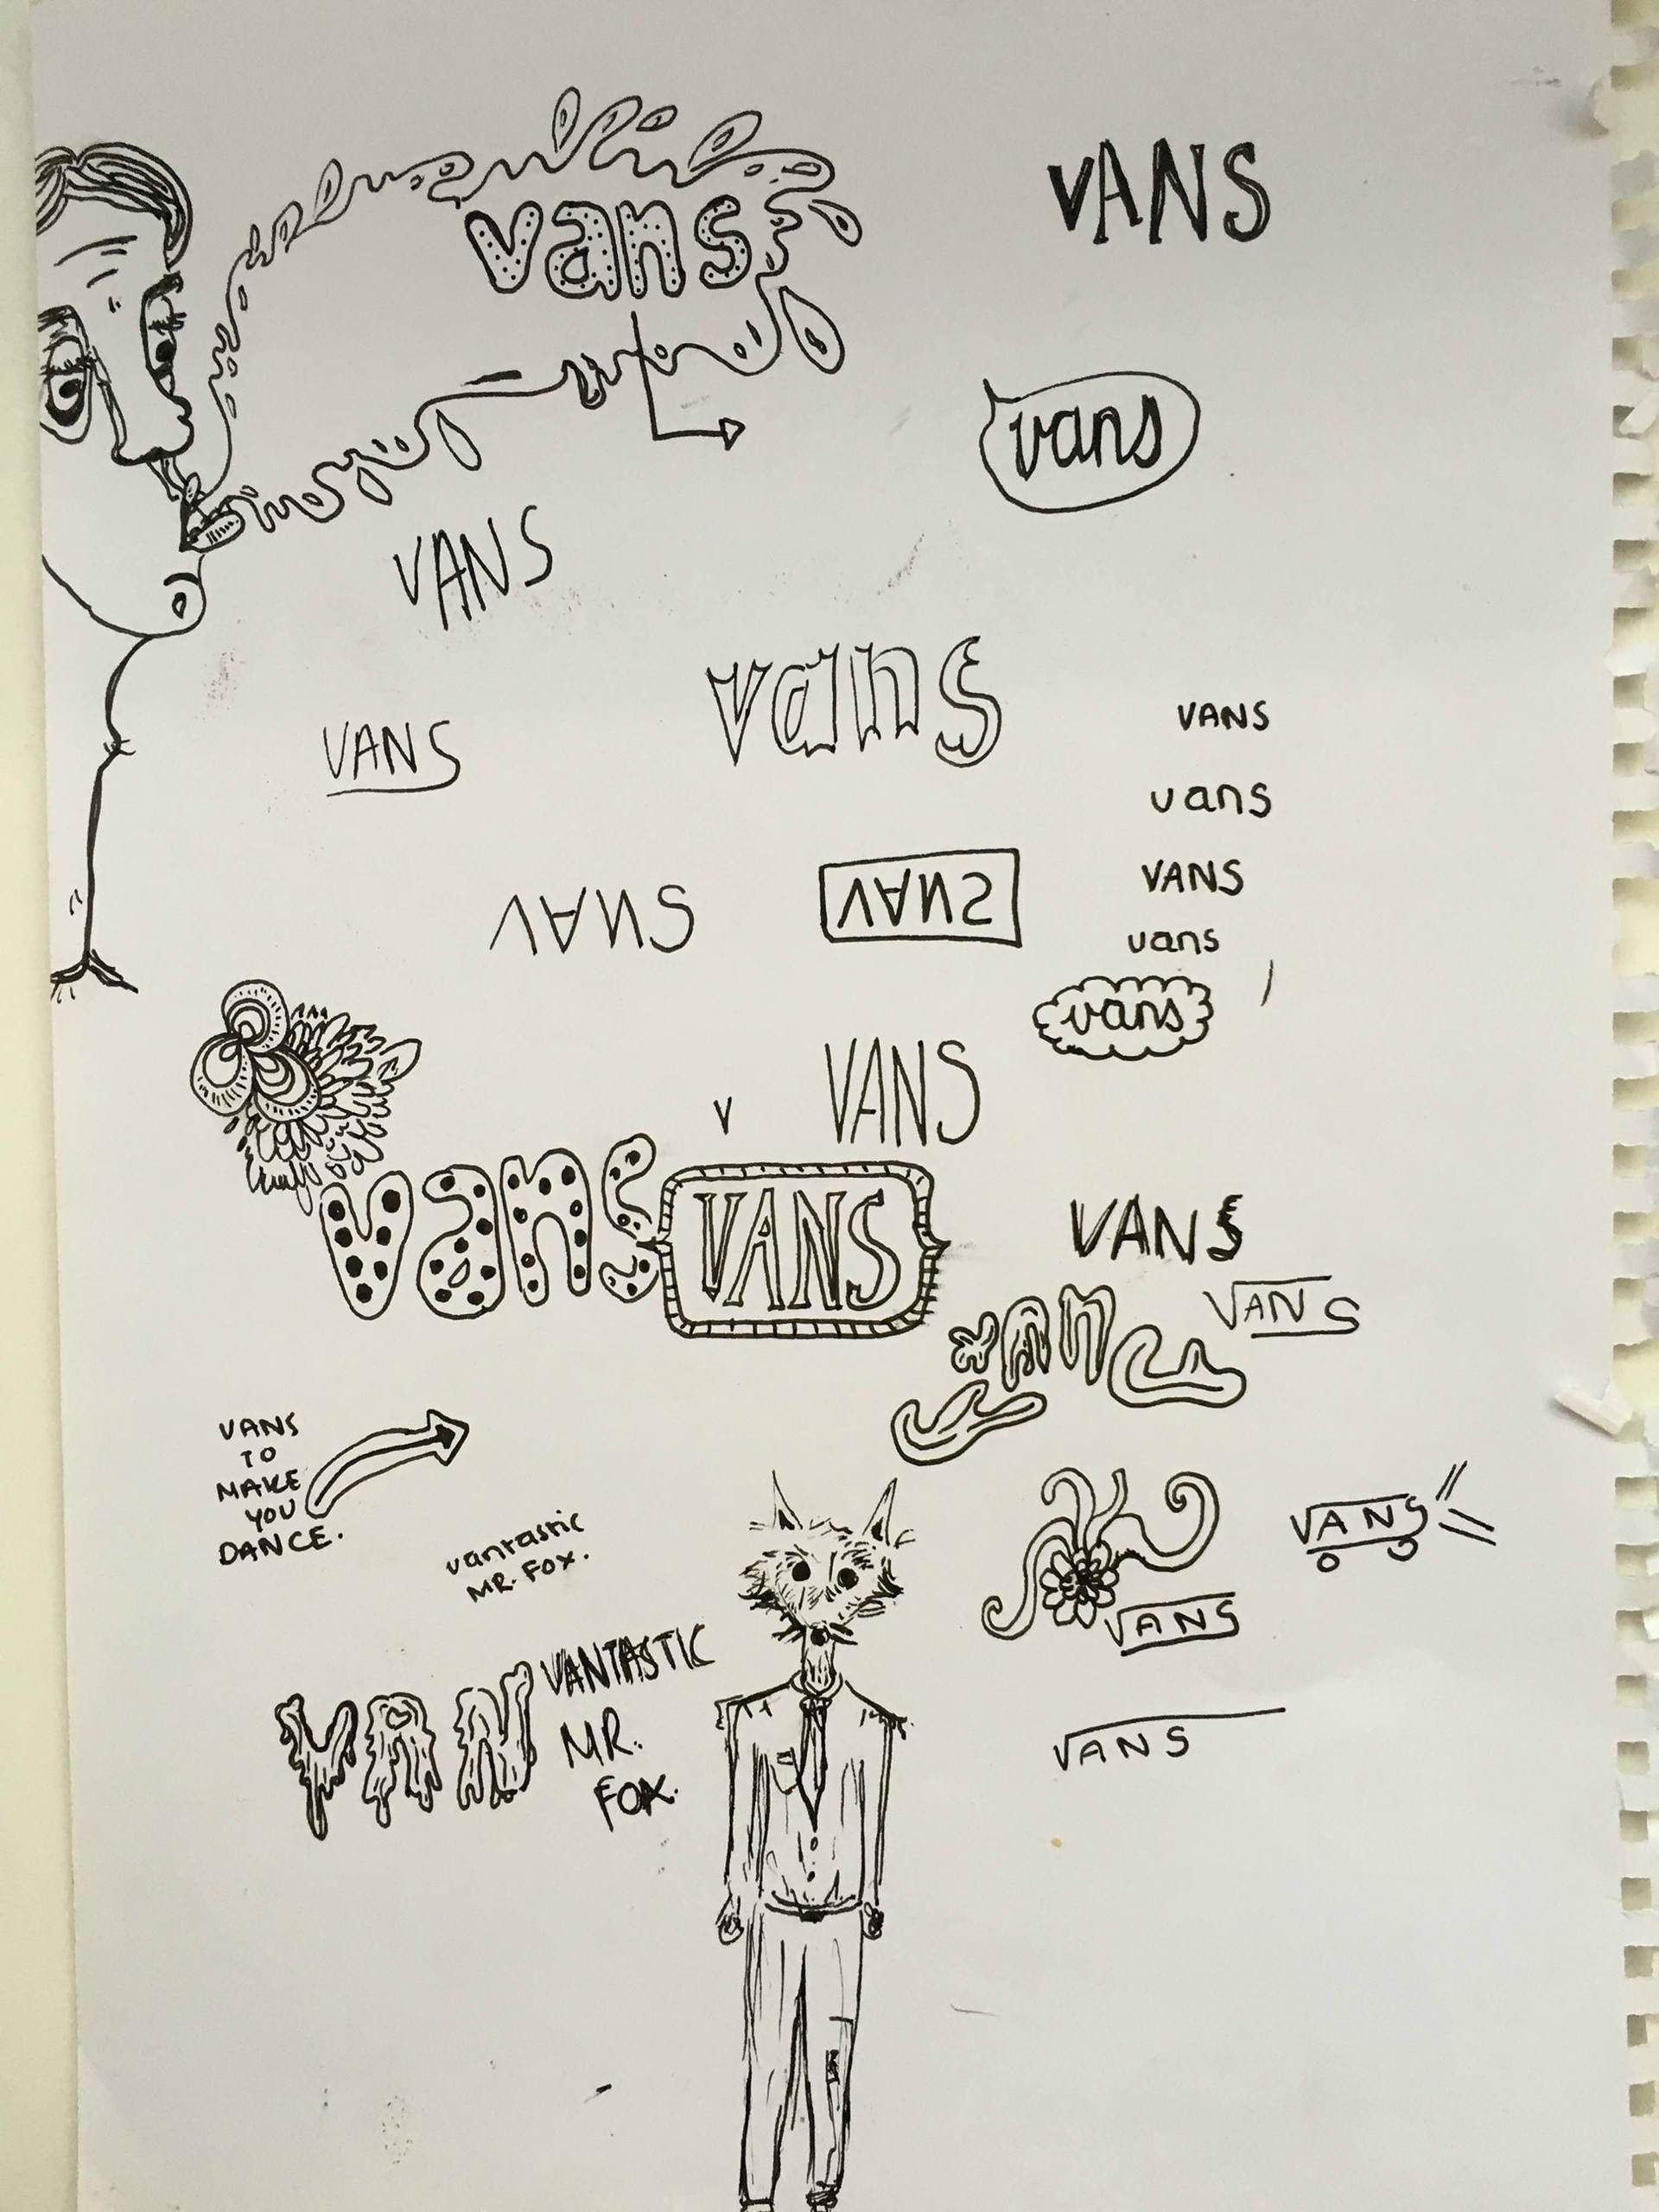 vans
VANS
vans
VANS
vans
VANS
VANS
vans
VANS
VANS
VANS
vans
vans
VANS
V
vans
VANS
VANS
VANS
VANS
TO
MAKE
YOU
DANCE.
vantastic
MR. FOX.
VANS
VANS
VAN
VANTASTIC
MR.
FOX.
VANS